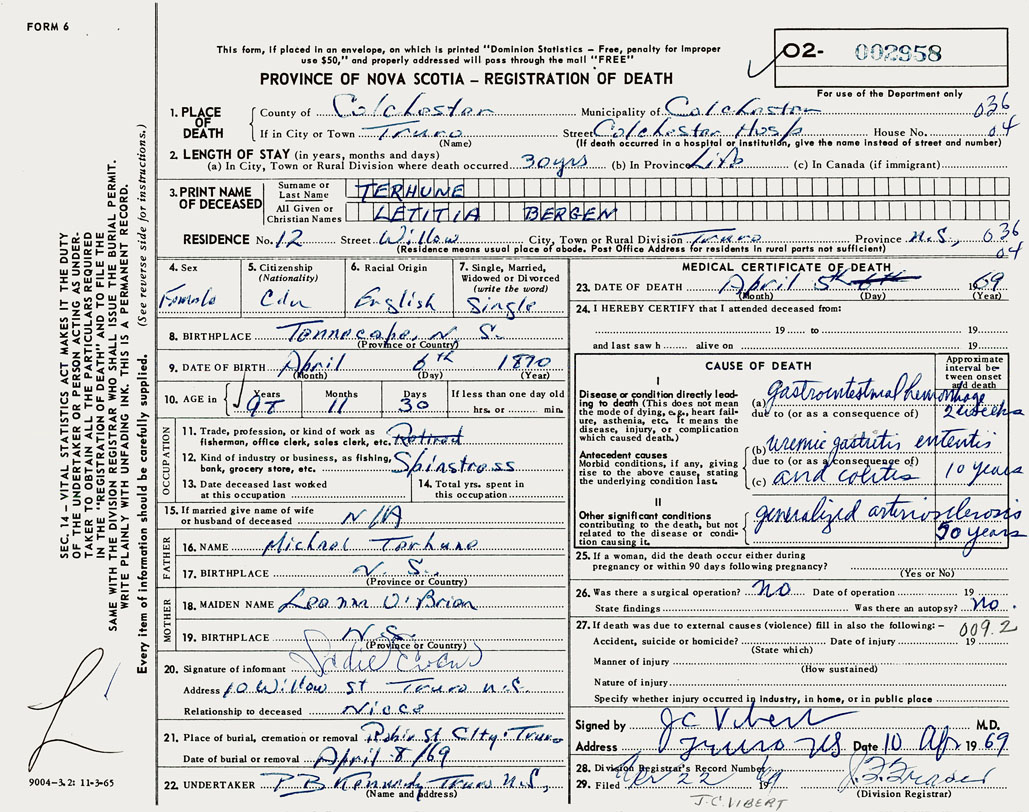 FORM 6
This form, if placed in an envelope, on which is printed "Dominion Statistics – Free, penalty for improper
use $50," and properly addressed will pass through the mail "FREE"
PROVINCE OF NOVA SCOTIA – REGISTRATION OF DEATH
O2- 002958
For use of the Department only
1. PLACE OF DEATH
County of Colchester Municipality of Colchester 036
If in City or Town Truro Street Colchester Hosp House No. 04
(Name) (If death occurred in a hospital or institution, give the name instead of street and number)
2. LENGTH OF STAY (in years, months and days)
(a) In City, Town or Rural Division where death occurred 30 yrs (b) In Province Life (c) In Canada (if immigrant)
3. PRINT NAME OF DECEASED
Surname or Last Name TERHUNE
All Given or Christian Names LETITIA BERGEN
RESIDENCE No. 12 Street Willow City, Town or Rural Division Truro Province N.S, 036
(Residence means usual place of abode. Post Office Address for residents in rural parts not sufficient) 04
4. Sex Female
5. Citizenship (Nationality) Cdn
6. Racial Origin English
7. Single, Married, Widowed or Divorced (write the word) Single
8. BIRTHPLACE Tennecape, N.S.
(Province or Country)
9. DATE OF BIRTH April 6th 1870
(Month) (Day) (Year)
10. AGE in Years 98 Months 11 Days 30 If less than one day old
hrs. or min.
OCCUPATION
11. Trade, profession, or kind of work as
fisherman, office clerk, sales clerk, etc. Retired
12. Kind of industry or business, as fishing,
bank, grocery store, etc. Spinstress
13. Date deceased last worked
at this occupation
14. Total yrs. spent in
this occupation
15. If married give name of wife
or husband of deceased N/A
FATHER
16. NAME Michael Terhune
17. BIRTHPLACE N.S.
(Province or Country)
MOTHER
18. MAIDEN NAME Leanna O'Brian
19. BIRTHPLACE N.S.
(Province or Country)
20. Signature of informant Sadie Ewens
Address 10 Willow St Truro N.S.
Relationship to deceased Niece
21. Place of burial, cremation or removal Robie St City, Truro
Date of burial or removal April 8/69
22. UNDERTAKER P.B. Kennedy Truro N.S.,
(Name and address)
MEDICAL CERTIFICATE OF DEATH
23. DATE OF DEATH April 5th 6th 1969
(Month) (Day) (Year)
24. I HEREBY CERTIFY that I attended deceased from:
19 to 19
and last saw h alive on 19
CAUSE OF DEATH
Approximate interval between onset and death
I
Disease or condition directly leading to death (This does not
mean the mode of dying, e.g., heart failure, asthenia, etc. It means the
disease, injury, or complication
which caused death.)
(a) gastrointestinal hemorrhage
due to (or as a consequence of) 2 weeks
Antecedent causes
Morbid conditions, if any, giving
rise to the above cause, stating
the underlying condition last.
(b) uremic gastritis enteritis
due to (or as a consequence of)
(c) and colitis 10 years
II
Other significant conditions
contributing to the death, but not
related to the disease or condition
causing it.
generalized arteriosclerosis
50 years
25. If a woman, did the death occur either during
pregnancy or within 90 days following pregnancy?
(Yes or No)
26. Was there a surgical operation? NO Date of operation 19
State findings Was there an autopsy? NO.
27. If death was due to external causes (violence) fill in also the following: – 009.2
Accident, suicide or homicide? Date of injury 19
(State which)
Manner of injury
(How sustained)
Nature of injury
Specify whether injury occurred in Industry, in home, or in public place
Signed by J C Vibert M.D.
Address Truro NS Date 10 Apr 1969
28. Division Registrar's Record Number
29. Filed Apr 22 1969
(Division Registrar)
J.C. VIBERT
SEC. 14 – VITAL STATISTICS ACT MAKES IT THE DUTY
OF THE UNDERTAKER OR PERSON ACTING AS UNDER-
TAKER TO OBTAIN ALL THE PARTICULARS REQUIRED
IN THE "REGISTRATION OF DEATH" AND TO FILE THE
SAME WITH THE DIVISION REGISTRAR WHO SHALL ISSUE THE BURIAL PERMIT.
WRITE PLAINLY WITH UNFADING INK. THIS IS A PERMANENT RECORD.
Every item of information should be carefully supplied. (See reverse side for instructions.)
9004-3.2: 11-3-65